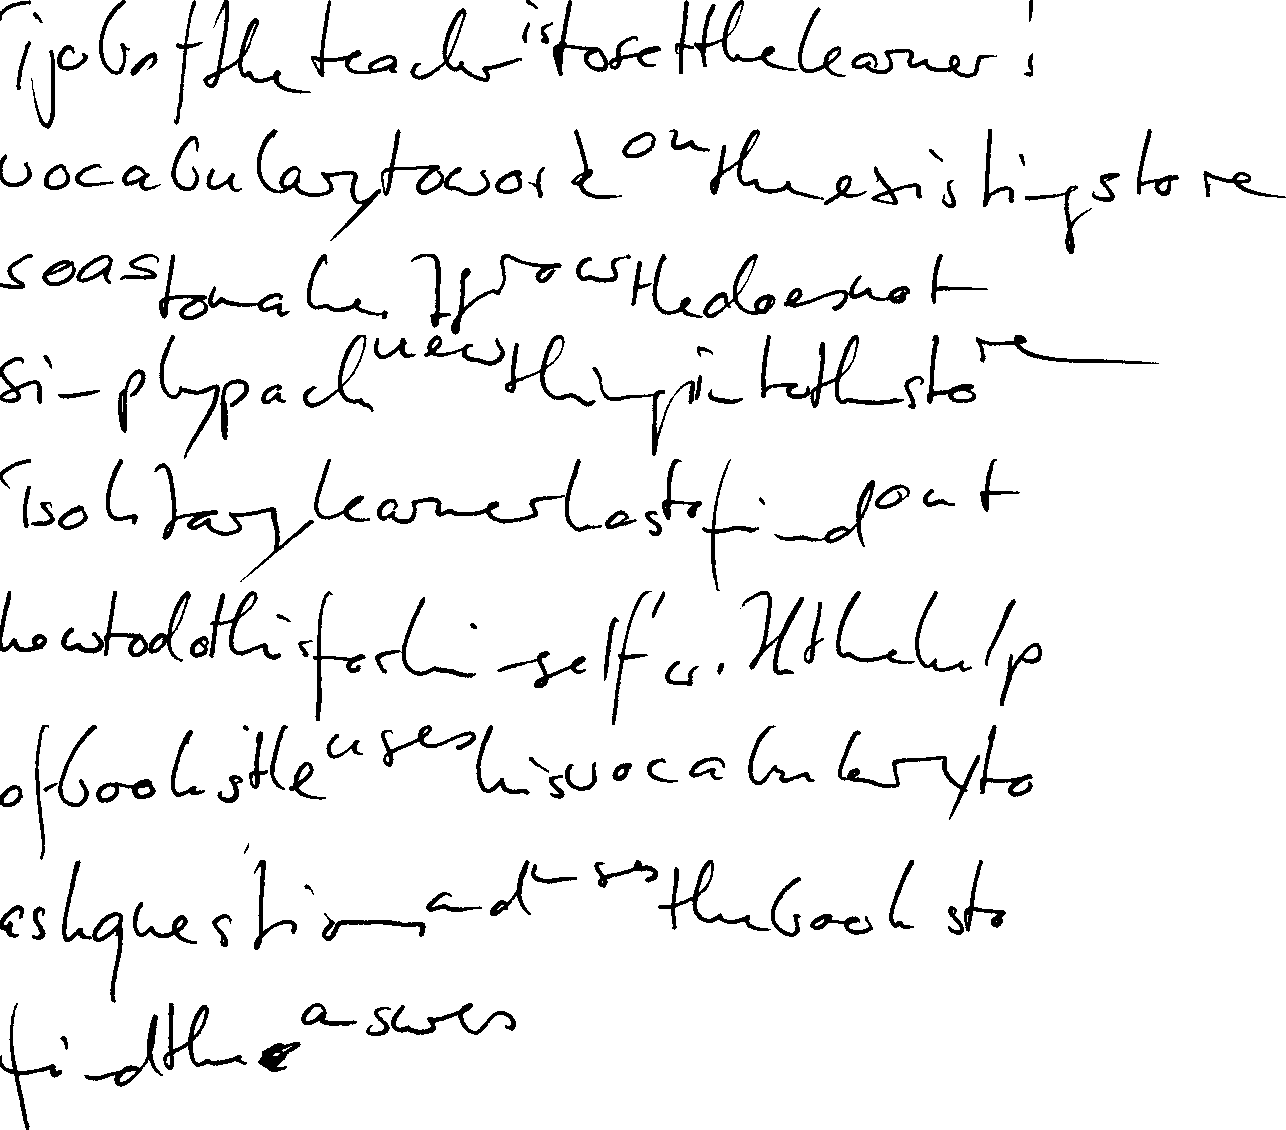 job of the teacher is to set the learner's
vocabulary to work on the existing store
so as to make it grow the does not
simply pack new things into the store
solitary learner has to find out
how to do this for himself with the help
of books the uses his vocabulary to
ask question and uses the books to
find the answers